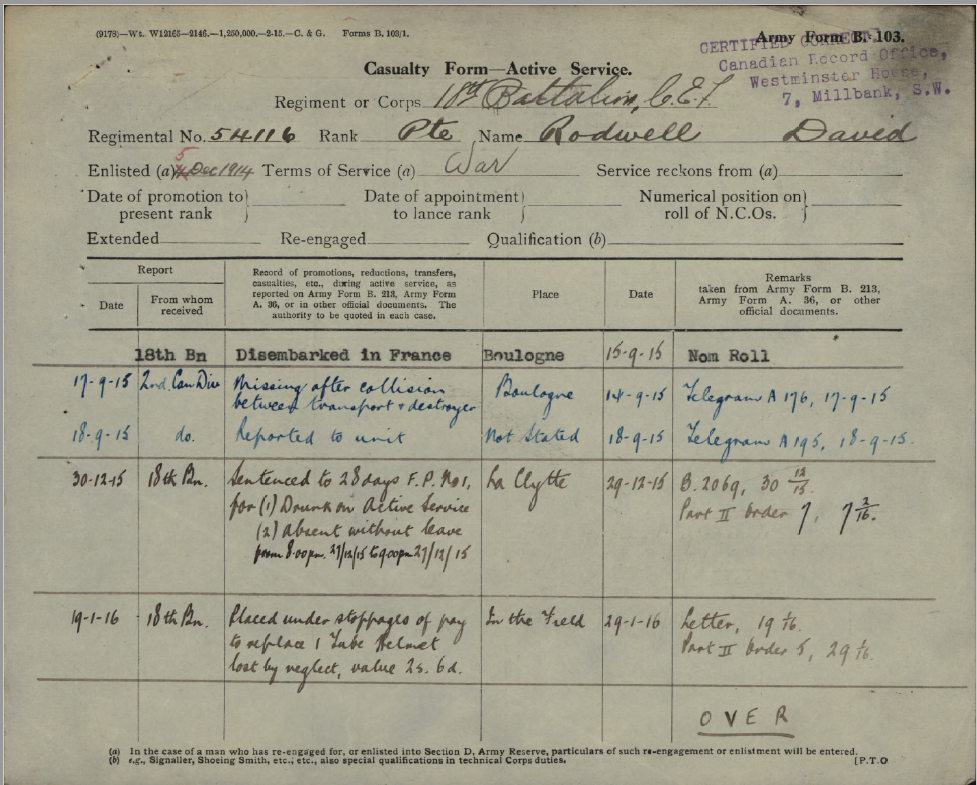 (9178)—Wt. W12165—2146.—1,250,000.—2-15.—C. & G. Forms B. 103/1.
Army Form B. 103.
CERTIFIED CORRECT.
Canadian Record Office,
Westminster House,
7, Millbank, S.W.
Casualty Form—Active Service.
Regiment or Corps 18th Battalion, C.E.F
Regimental No. 54116 Rank Pte Name Rodwell David
5
Enlisted (a) Dec 1914 Terms of Service (a) War Service reckons from (a)
Date of promotion to present rank Date of appointment to lance rank Numerical position on roll of N.C.Os.
Extended Re-engaged Qualification (b)
Report
Date
From whom received
Record of promotions, reductions, transfers,
casualties, etc., during active service, as
reported on Army Form B. 213, Army Form
A. 36, or in other official documents. The
authority to be quoted in each case.
Place
Date
Remarks
taken from Army Form B. 213,
Army Form A. 36, or other
official documents.
18th Bn Disembarked in France Boulogne 15-9-15 Nom Roll
17-9-15 2nd Can Div Missing after collision Boulogne 14-9-15 Telegram A 176, 17-9-15
between transport & destroyer
18-9-15 do. Reported to unit Not Stated 18-9-15 Telegram A195, 18-9-15.
30-12-15 18th Bn. Sentenced to 28 days F.P. No 1, La Clytte 29-12-15 B. 2069, 30 12/15.
for (1) Drunk on Active Service Part II Order 7, 7 2/16.
(2) Absent without leave
from 8.00pm 27/12/15 to 9.00pm 27/12/15
19-1-16 18th Bn. Placed under stoppages of pay In the Field 29-1-16 Letter, 19 1/16.
to replace 1 Tube Helmet Part II Order 5, 29 1/16.
lost by neglect, value 2s. 6d.
OVER
(a) In the case of a man who has re-engaged for, or enlisted into Section D, Army Reserve, particulars of such re-engagement or enlistment will be entered.
(b) e.g., Signaller, Shoeing Smith, etc., etc., also special qualifications in technical Corps duties. [P.T.O